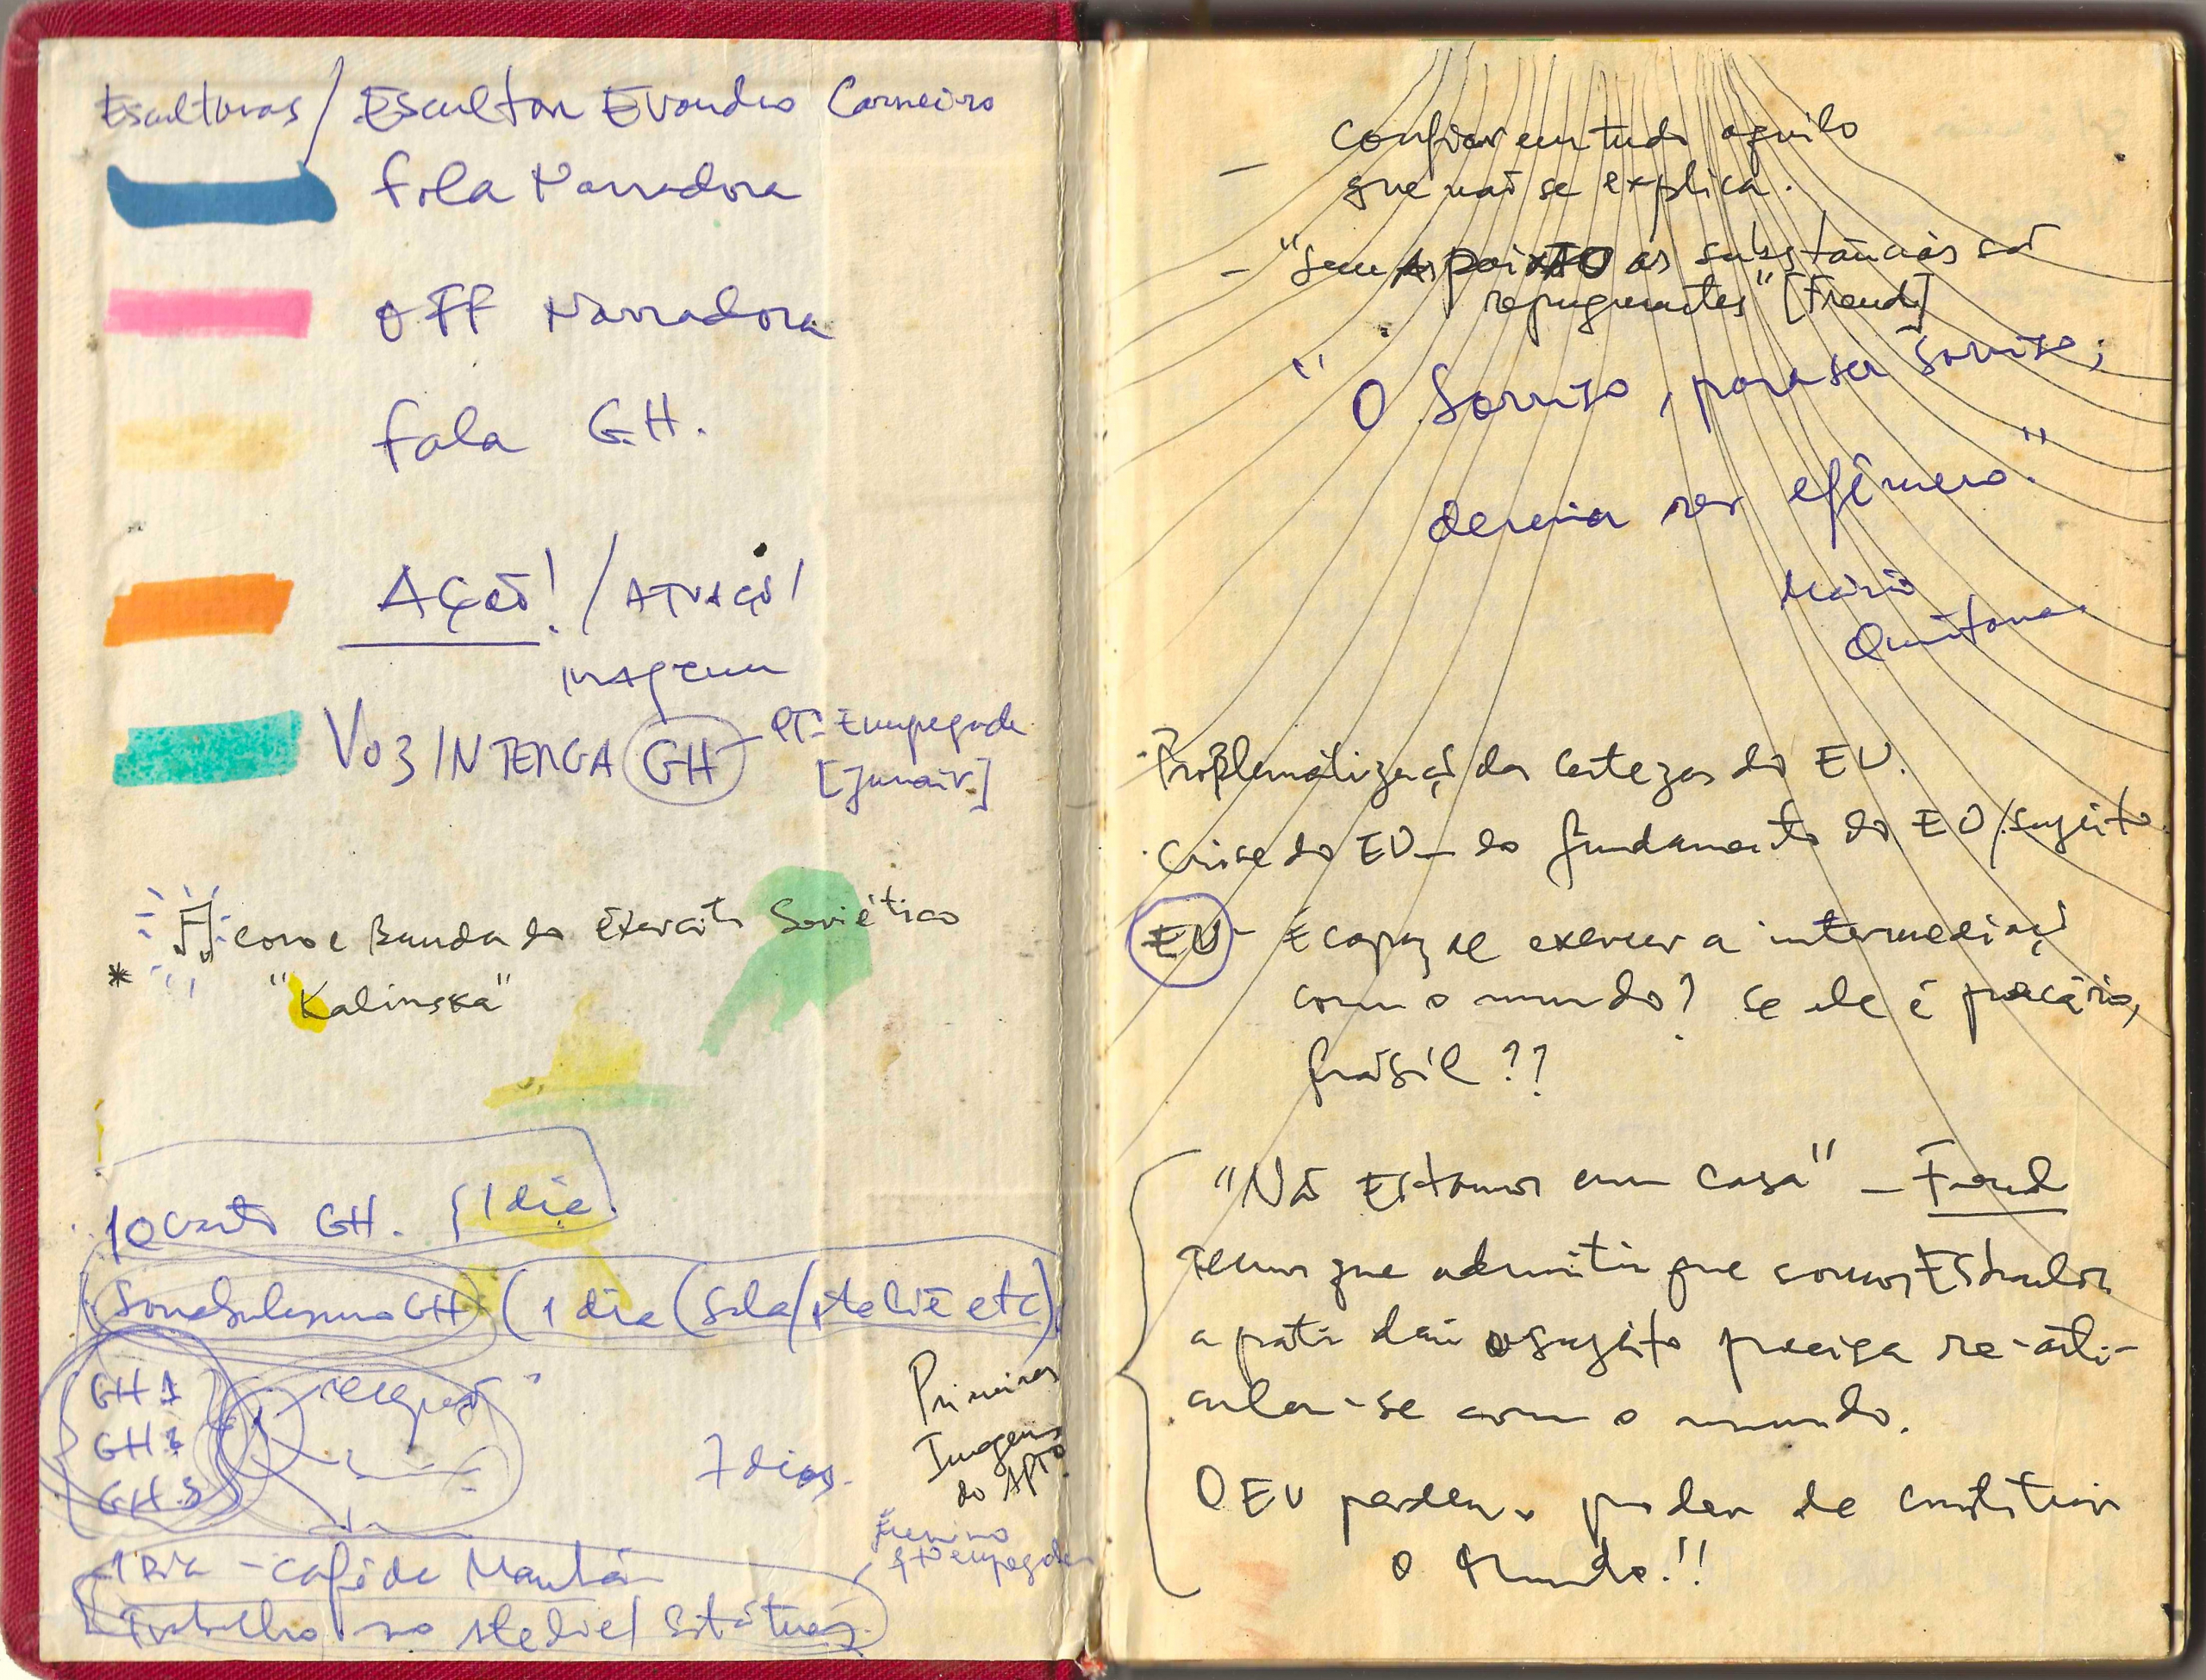 Esculturas / Escultor Evandro Carneiro
fala Narradora
OFF Narradora
fala G.H.
AÇÃO! / ATUAÇÃO /
imagem
VOZ INTERNA GH - Empegada
[Janair]
coro e Banda do Exército Soviético
* "Kalinska"
1 Quarto GH. 1 dia.
GH (1 dia (Sala/Ateliê etc)
GH 1
GH 2
GH 3
7 dias.
Primeiras
Imagens
do APTO
1 Dia - café da Manhã
Trabalho no Atelie / Estátuas
- Confiar em tudo aquilo
que não se explica.
- "Sem A paixão as substâncias são
repugnantes" [Freud]
"O Sorriso, para ser sorriso,
deveria ser efêmero."
Mário
Quintana
Problematização das certezas do EU.
Crise do EU - do fundamento do EU/sujeito
EU - É capaz de exercer a intermediação
com o mundo? Se ele é precário,
frágil??
"Não Estamos em casa" - Freud
Temos que admitir que somos
a partir daí o sujeito precisa re-arti-
cular-se com o mundo.
O EU perdeu o poder de constituir
o Mundo!!